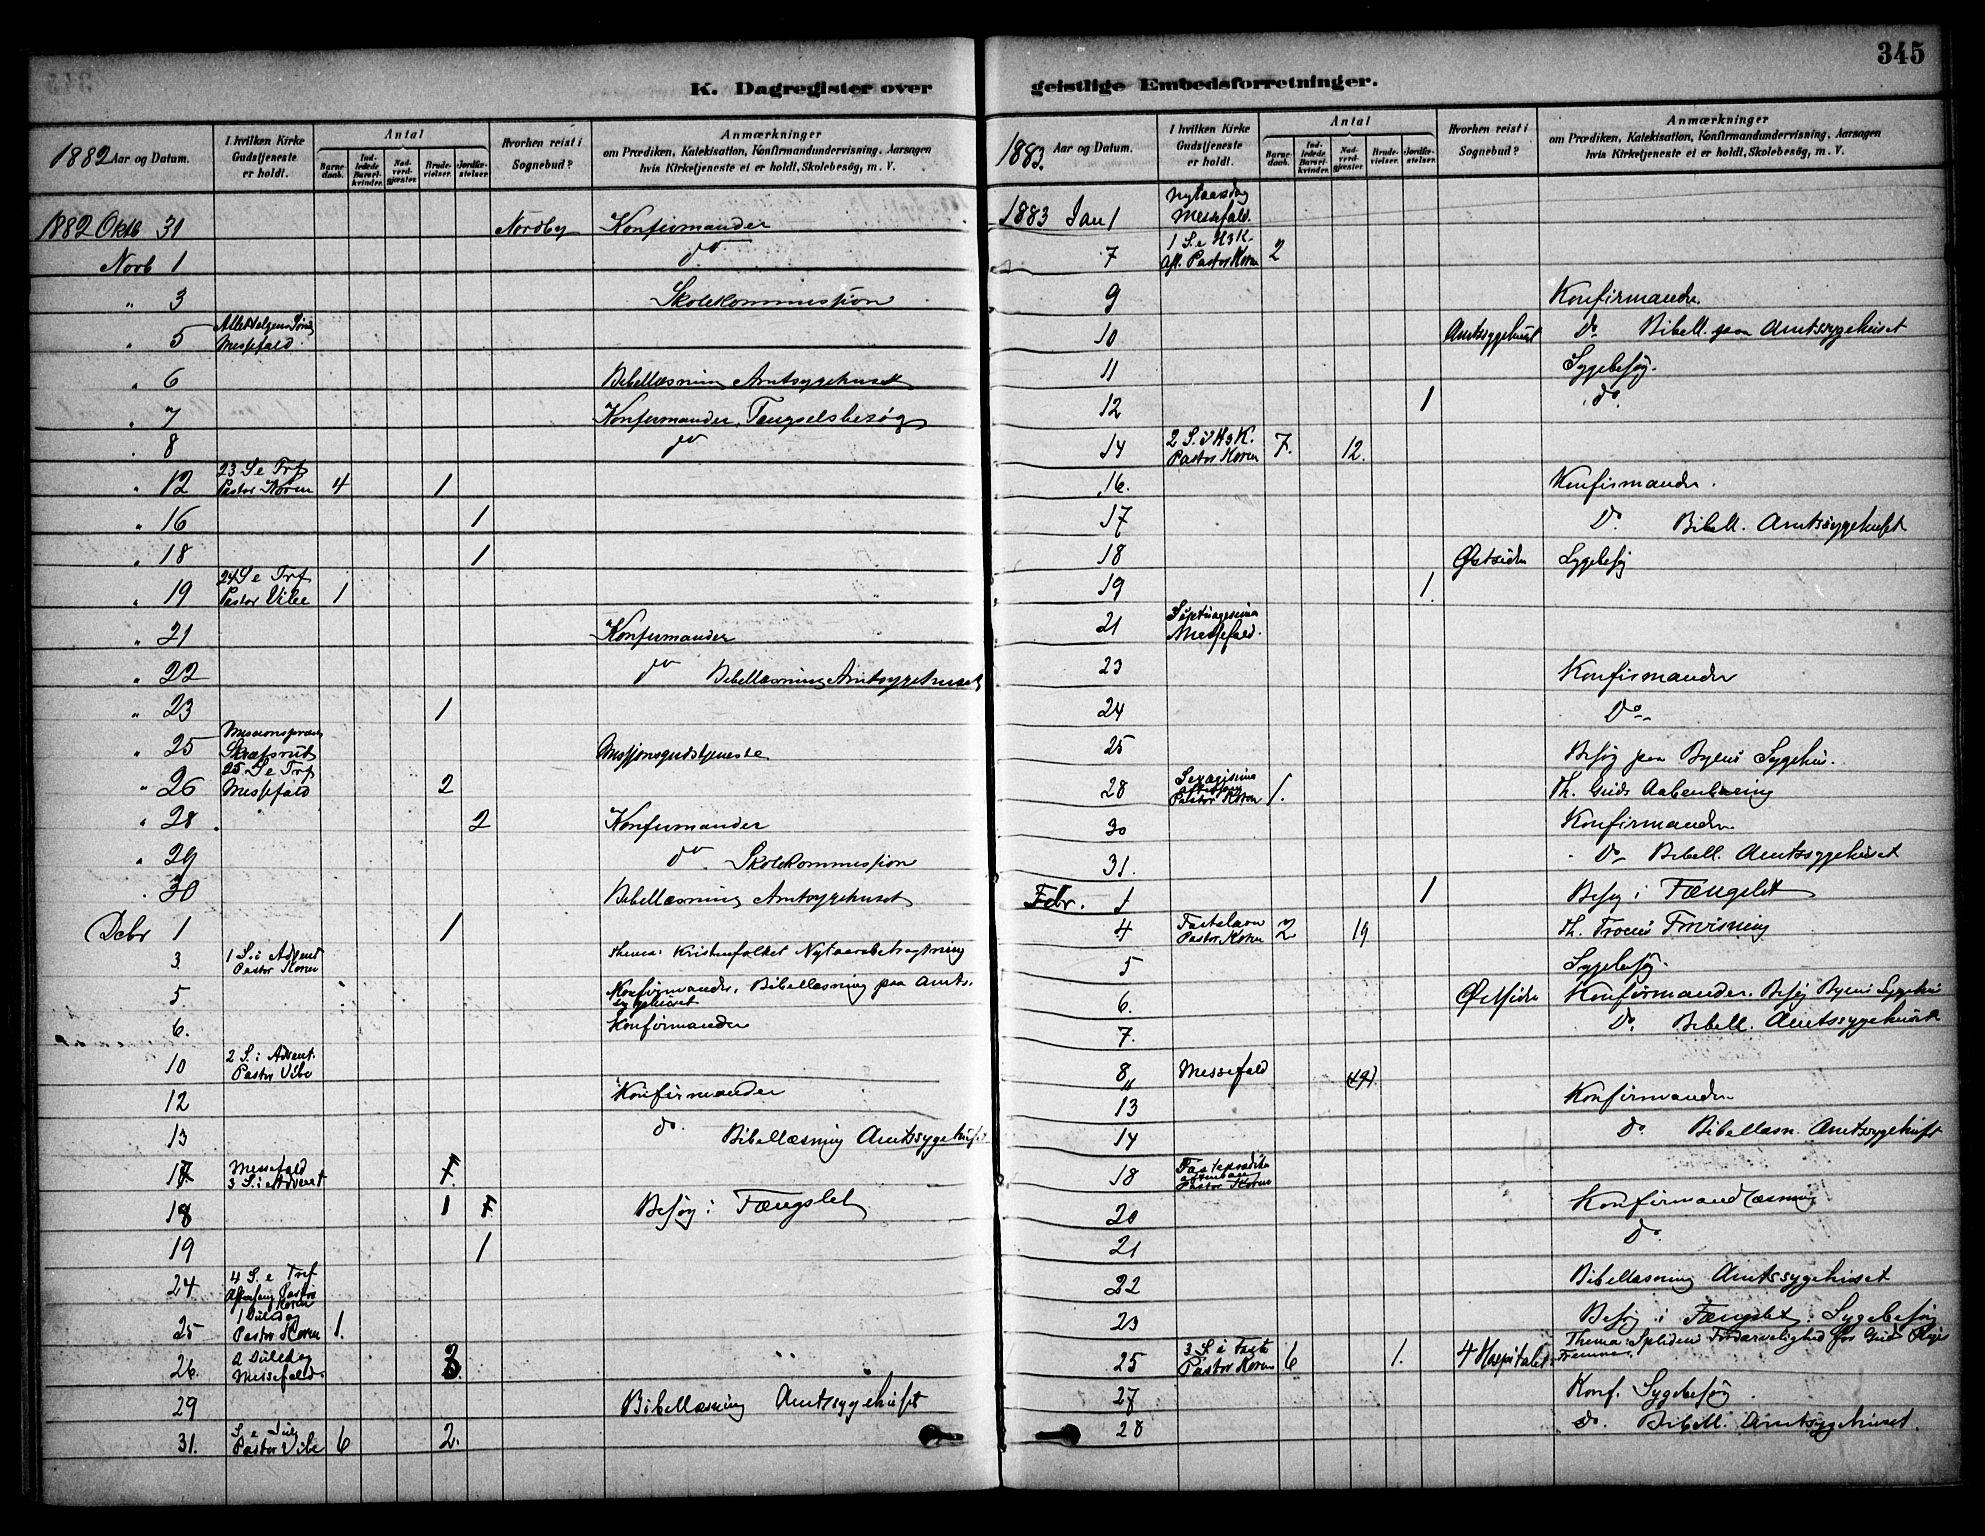 345
K. Dagregister over geistlige Embedsforretninger.
1882 Aar og Datum.
I hvilken Kirke Gudstjeneste er holdt.
Antal
Barnedaab.
Indledede Barselkvinder.
Nadverdgjæster.
Brudevielser.
Jordfæstelser.
Hvorhen reist i Sognebud?
Anmærkninger
om Prædiken, Katekisation, Konfirmandundervisning, Aarsagen
hvis Kirketjeneste ei er holdt, Skolebesög, m. V.
1882 Oktb 31 Nordby Konfirmander
Novb 1 do
" 3 Skolekommission
" 5 Alle Helgens Messefald.
" 6 Bibellæsning Amtsygehuset
" 7 Konfirmander, Fængselsbesøg
" 8 do
" 12 23 S e Trf Pastor Koren 4 1
" 16 1
" 18 1
" 19 24 S e Trf Pastor Vibe 1
" 21 Konfirmander
" 22 do Bibellæsning Amtsygehuset
" 23 1
" 25 Missionspræst Skrefsrud Missjonsgudstjeneste
" 26 25 S e Trf Messefald 2
" 28 2 Konfirmander
" 29 do Skolekommission
" 30 Bibellæsning Amtsygehuset
Debr 1 1
3. 1 S. i Advent Pastor Koren Thema: Kristenfolket Nytaarsbetragtning
5. Konfirmander. Bibellæsning paa Amts.
sygehuset
6. Konfirmander
10 2 S. i Advent. Pastor Vibe
12 Konfirmander
13 do. Bibellæsning Amtssygehuset
17 Messefald 3 S. i Advent
18 1 Besøg i Fængslet
19 1
24 4 S. e Trf Aftensang Pastor Koren
25 1 Juledag Pastor Koren 1.
26. 2 Juledag Messefald.
29 Bibellæsning Amtsygehuset
31. S. e Jul Pastor Vibe 6 2.
1883. Aar og Datum.
I hvilken Kirke Gudstjeneste er holdt.
Antal
Barnedaab.
Indledede Barselkvinder.
Nadverdgjæster.
Brudevielser.
Jordfæstelser.
Hvorhen reist i Sognebud?
Anmærkninger
om Prædiken, Katekisation, Konfirmandundervisning, Aarsagen
hvis Kirketjeneste ei er holdt, Skolebesög, m. V.
1883 Jan 1 Nytaarsdag Messefald.
7 1 S. e H3K. Aft. Pastor Koren 2
9 Konfirmander
10 Amtssygehuset Do Bibell. paa Amtssygehuset
11 Sygebesøg.
12 1 do.
14 2 S. e H3K. Pastor Koren 7. 12.
16. Konfirmander.
17 Do. Bibell. Amtssygehuset
18 Østsiden Sygebesøg
19 1.
21 Septuagesima Messefald.
23 Konfirmander
24 Do
25 Besøg paa Byens Sygehus.
28 Sexagesima Aftensang Pastor Koren 1. Th. Guds Aabenbaring
30 Konfirmander.
31. Do Bibell. Amtssygehuset
Febr. 1 1 Besøg i Fængslet
4 Fastelavn Pastor Koren 2 19 Th. Troens Forvisning
5 Sygebesøg.
6. Østsiden Konfirmander. Besøg Byens Sygehus
7. Do. Bibell. Amtssygehuset
8 Messefald
13 Konfirmander
14 Do. Bibellæsn. Amtssygehuset
18 Pastor Koren
20 Konfirmandlæsning
21 Do
22 Bibellæsning Amtssygehuset
23 Besøg i Fængslet: Sygebesøg
25 3 S. i Faste Pastor Koren 6 1. 4 Hospitalet Thema: Splidens Fordærvelighed for Guds Riges
Fremme.
27 Konf. Sygebesøg
28 do. Bibell. Amtssygehuset.